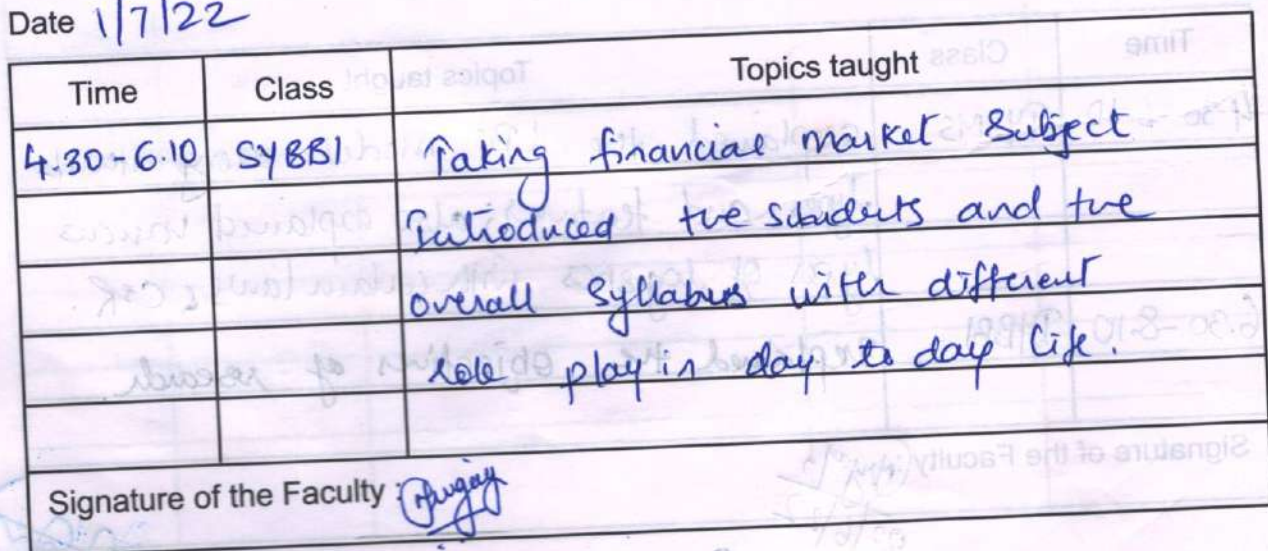 Date 1/7/22
Time Class Topics taught
4.30-6.10 SYBBI Taking financial market Subject
Introduced the students and the
overall Syllabus with different
role play in day to day life.
Signature of the Faculty :